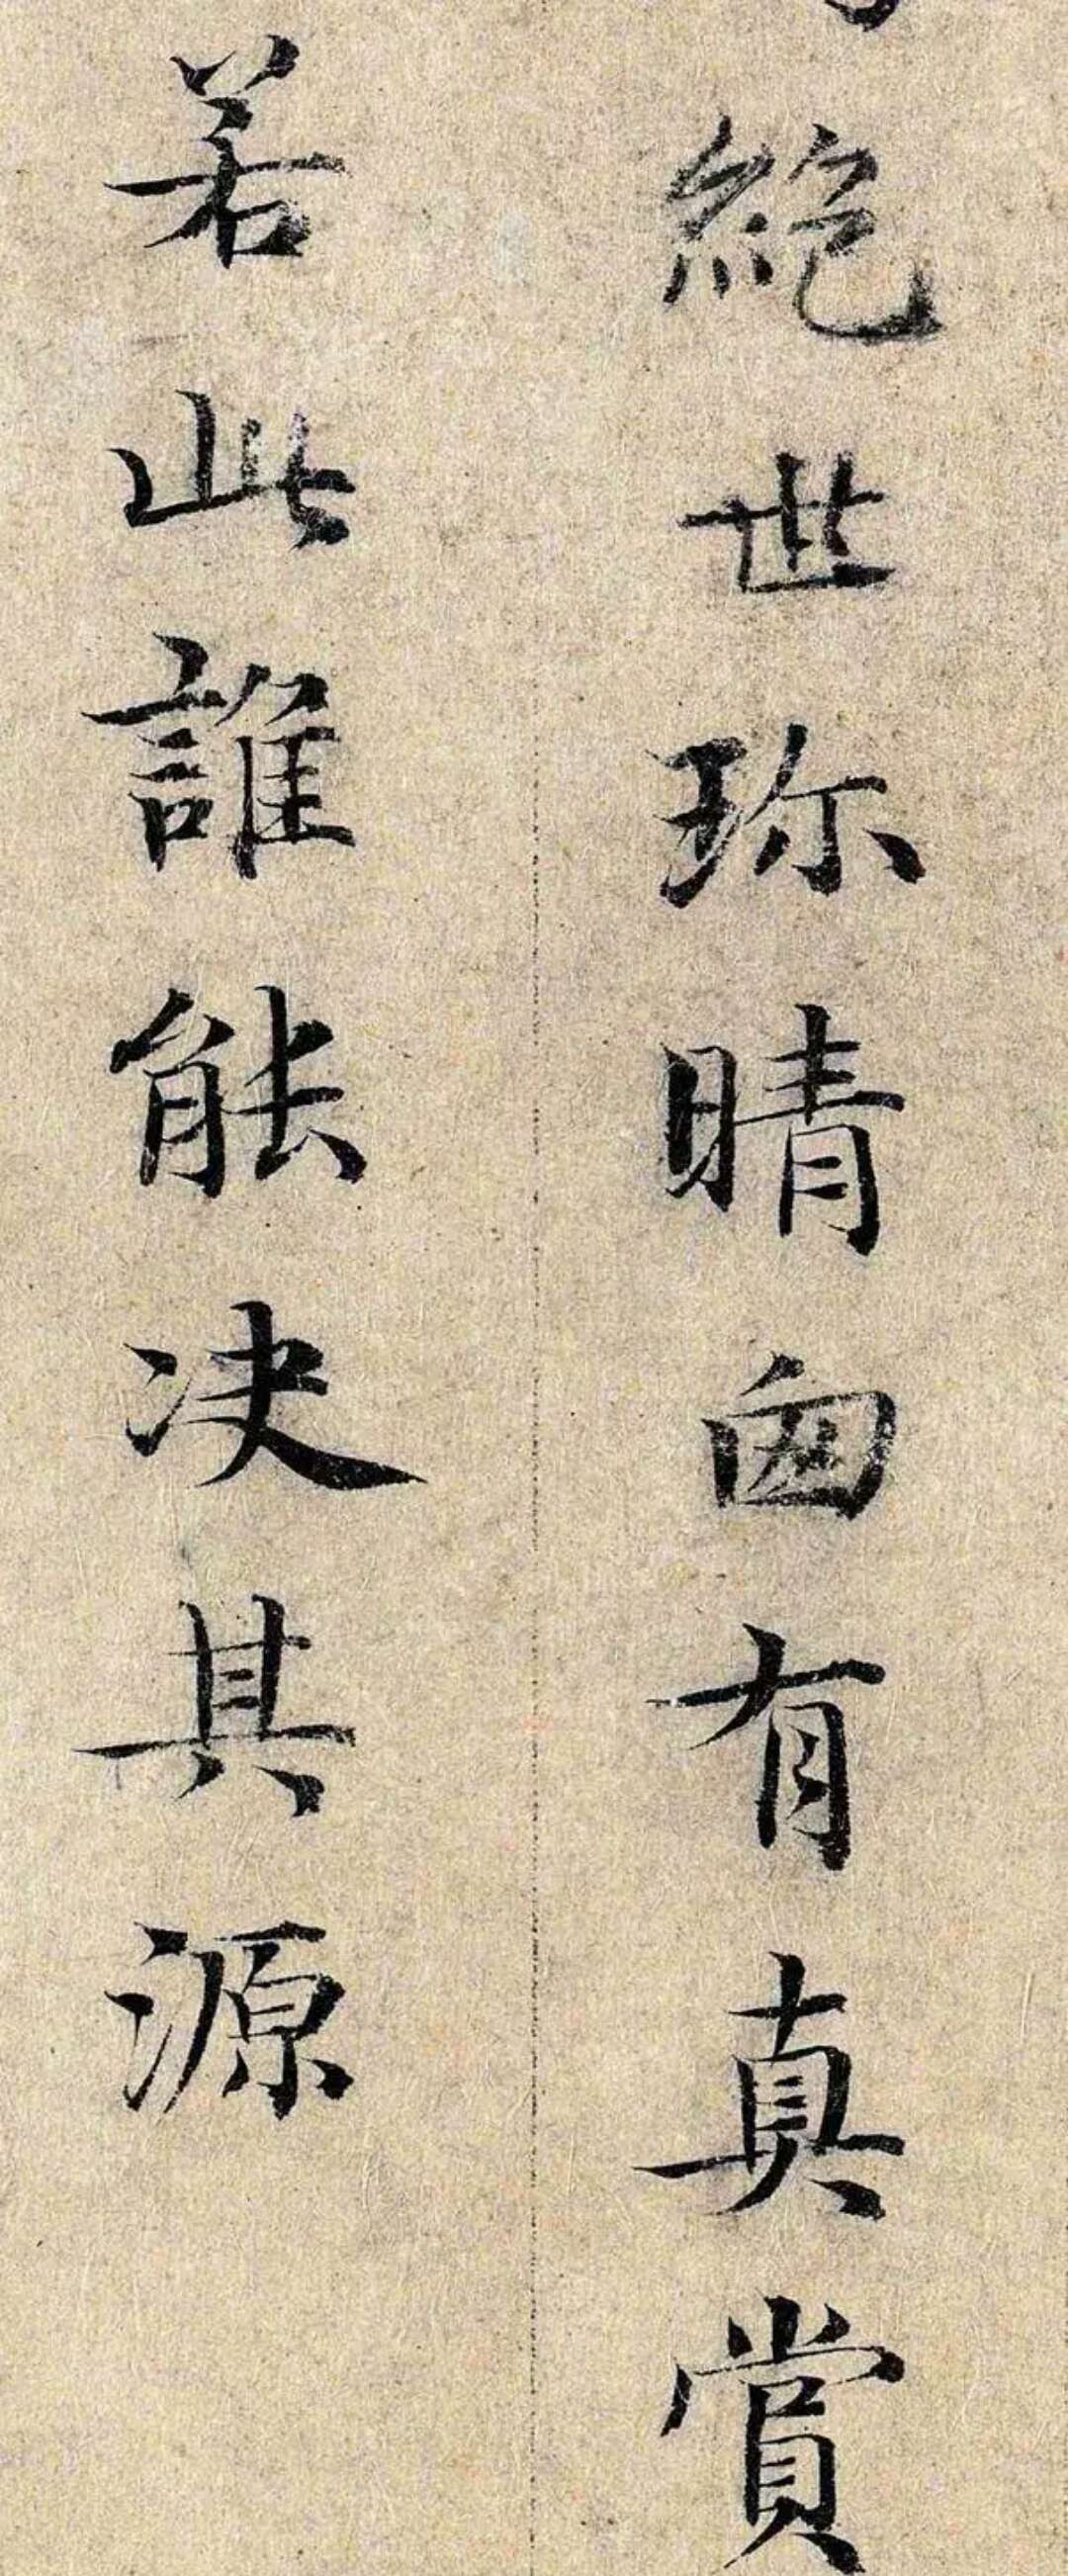 絶世珎晴囱有真賞
若此誰能决其源